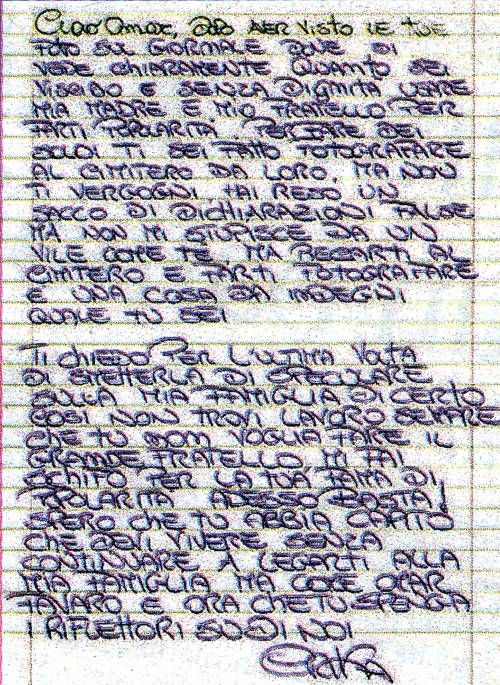 Ciao Omar, dopo aver visto le tue
foto sul giornale dove si
vede chiaramente quanto sei
viscido e senza dignità usare
mia madre e mio fratello per
farti popolarità per fare dei
soldi ti sei fatto fotografare
al cimitero da loro, ma non
ti vergogni hai reso un
sacco di dichiarazioni false
ma non mi stupisce da un
vile come te, ma recarti al
cimitero e farti fotografare
è una cosa da indegni
quale tu sei
Ti chiedo per l'ultima volta
di smetterla di speculare
sulla mia famiglia di certo
così non trovi lavoro sempre
che tu non voglia fare il
grande fratello mi fai
schifo per la tua fama di
popolarità adesso basta!
spero che tu abbia capito
che devi vivere senza
continuare a legarti alla
mia famiglia ma come Omar
Favaro e ora che tu spenga
i riflettori su di noi
Erika